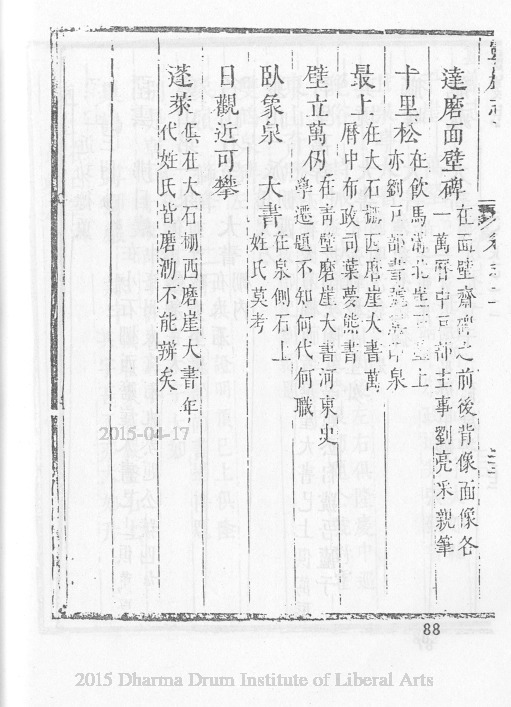 達磨面壁碑 在面壁齋碑之前後背像面像各
一萬曆中戶部主事劉亮采親筆
十里松 在飲馬溝北崖石壁上
亦劉戶部書 泉
最上 在大石棚西磨崖大書萬
曆中布政司葉夢熊書
壁立萬仞 在靑壁磨崖大書河東史
學遷題不知何代何職
臥象泉 大書 在泉側石上
姓氏莫考
日觀近可攀
蓬萊 俱在大石棚西磨崖大書年
代姓氏皆磨泐不能辨矣
2015-04-17
88
2015 Dharma Drum Institute of Liberal Arts